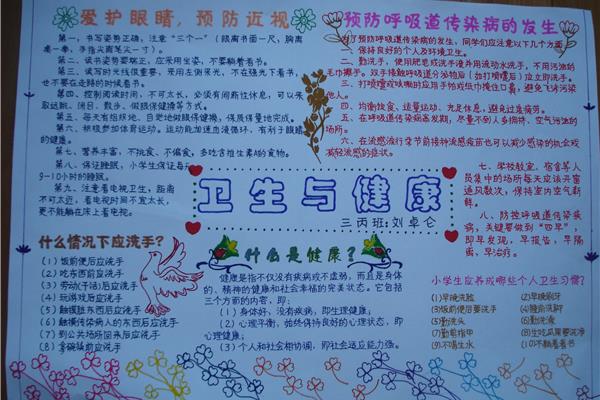 爱护眼睛，预防近视
第一、书写姿势正确，注意“三个一”（眼离书面一尺，胸离
桌一拳，手指尖离笔尖一寸）。
第二、读书姿势要端正，应采用坐姿，不要躺着看书。
第三、读写时光线很重要，采用左侧采光，不在强光下看书，也
不要在走路的时候看书。
第四、控制阅读时间，不可太长，必须有间断性休息，可以采
取远眺、闭目、散步、做眼保健操等方式。
第五、每天有组织地、自觉地做眼保健操，保质保量地完成。
第六、积极参加体育运动。运动能加速血液循环，有利于眼睛
的健康。
第七、营养丰富，不挑食、不偏食，多吃含维生素A的食物。
第八、保证睡眠，小学生保证每天
9-10小时的睡眠。
第九、注意看电视卫生，距离
不可太近，看电视时间不宜太长，
更不能躺在床上看电视。
预防呼吸道传染病的发生
为了预防呼吸道传染病的发生，同学们应注意以下几个方面：
一、保持良好的个人及环境卫生。
二、勤洗手，使用肥皂或洗手液并用流动水洗手，不用污浊的
毛巾擦手。双手接触呼吸道分泌物后（如打喷嚏后）应立即洗手。
三、打喷嚏或咳嗽时应用手帕或纸巾掩住口鼻，避免飞沫污染
他人。
四、均衡饮食、适量运动、充足休息，避免过度疲劳。
五、在呼吸道传染病高发期，尽量不到人多拥挤、空气污浊的
场所。
六、在流感流行季节前接种流感疫苗也可以减少感染的机会或
减轻流感的症状。
七、学校教室、宿舍等人
员集中的场所每天应该开窗
通风数次，保持室内空气新
鲜。
八、防控呼吸道传染疾
病，关键要做到“四早”，
即早发现，早报告，早隔
离，早治疗。
卫生与健康
三丙班:刘卓仑
什么情况下应洗手？
（1）饭前便后应洗手
（2）吃东西前应洗手
（3）劳动(干活)后应洗手
（4）玩游戏后应洗手
（5）触摸脏东西后应洗手
（6）触摸传染病人的东西后应洗手
（7）到公共场所回来后应洗手
（8）拿碗筷前应洗手
什么是健康？
健康是指不仅没有疾病或不虚弱，而且是身体
的、精神的健康和社会幸福的完美状态。它包括
三个方面的内容，即：
（1）身体好，没有疾病，即生理健康；
（2）心理平衡，始终保持良好的心理状态，即
心理健康；
（3）个人和社会相协调，即社会适应能力强。
小学生应养成哪些个人卫生习惯？
(1)早晚洗脸 (2)早晚刷牙
(3)饭前便后要洗手 (4)睡前洗脚
(5)勤洗头 (6)勤洗澡
(7)勤剪指甲 (8)生吃瓜果要洗净
(9)不喝生水 (10)不躺着看书